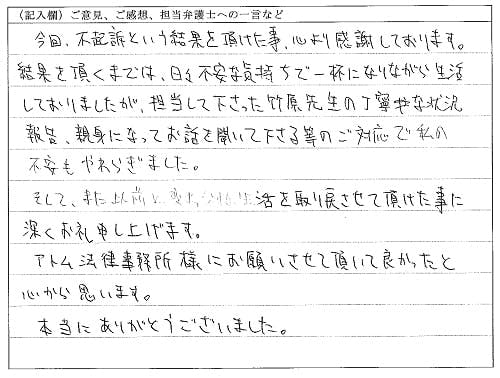 (記入欄)ご意見、ご感想、担当弁護士への一言など
今回、不起訴という結果を頂けた事、心より感謝しております。
結果を頂くまでは、日々不安な気持ちで一杯になりながら生活
しておりましたが、担当して下さった竹原先生の丁寧な状況
報告、親身になってお話を聞いて下さる等のご対応で私の
不安もやわらぎました。
そして、また以前と変わらない生活を取り戻させて頂けた事に
深くお礼申し上げます。
アトム法律事務所様にお願いさせて頂いて良かったと
心から思います。
本当にありがとうございました。